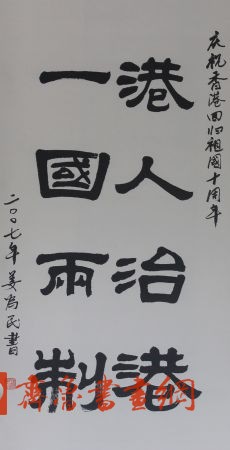 庆祝香港回归祖國十周年
港人治港
一國兩制
二〇〇七年姜為民書